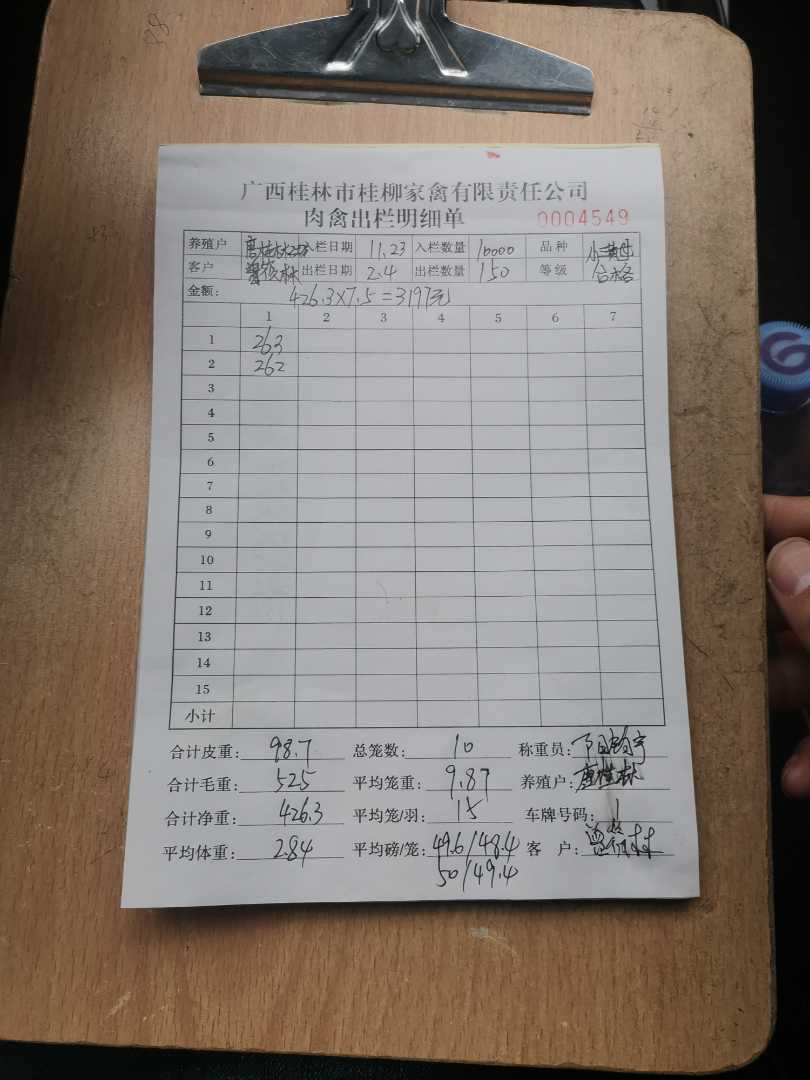 广西桂林市桂柳家禽有限责任公司
肉禽出栏明细单 0004549
养殖户 唐桂林 入栏日期 11.23 入栏数量 10000 品种 小黄
客户 出栏日期 2.4 出栏数量 150 等级 合格
金额: 426.3×7.5=3197元
1 2 3 4 5 6 7
1 263
2 262
3
4
5
6
7
8
9
10
11
12
13
14
15
小计
合计皮重: 98.7 总笼数: 10 称重员:
合计毛重: 525 平均笼重: 9.87 养殖户: 唐桂林
合计净重: 426.3 平均笼/羽: 15 车牌号码:
平均体重: 2.84 平均磅/笼: 49.6/48.4 客 户:
50/49.4